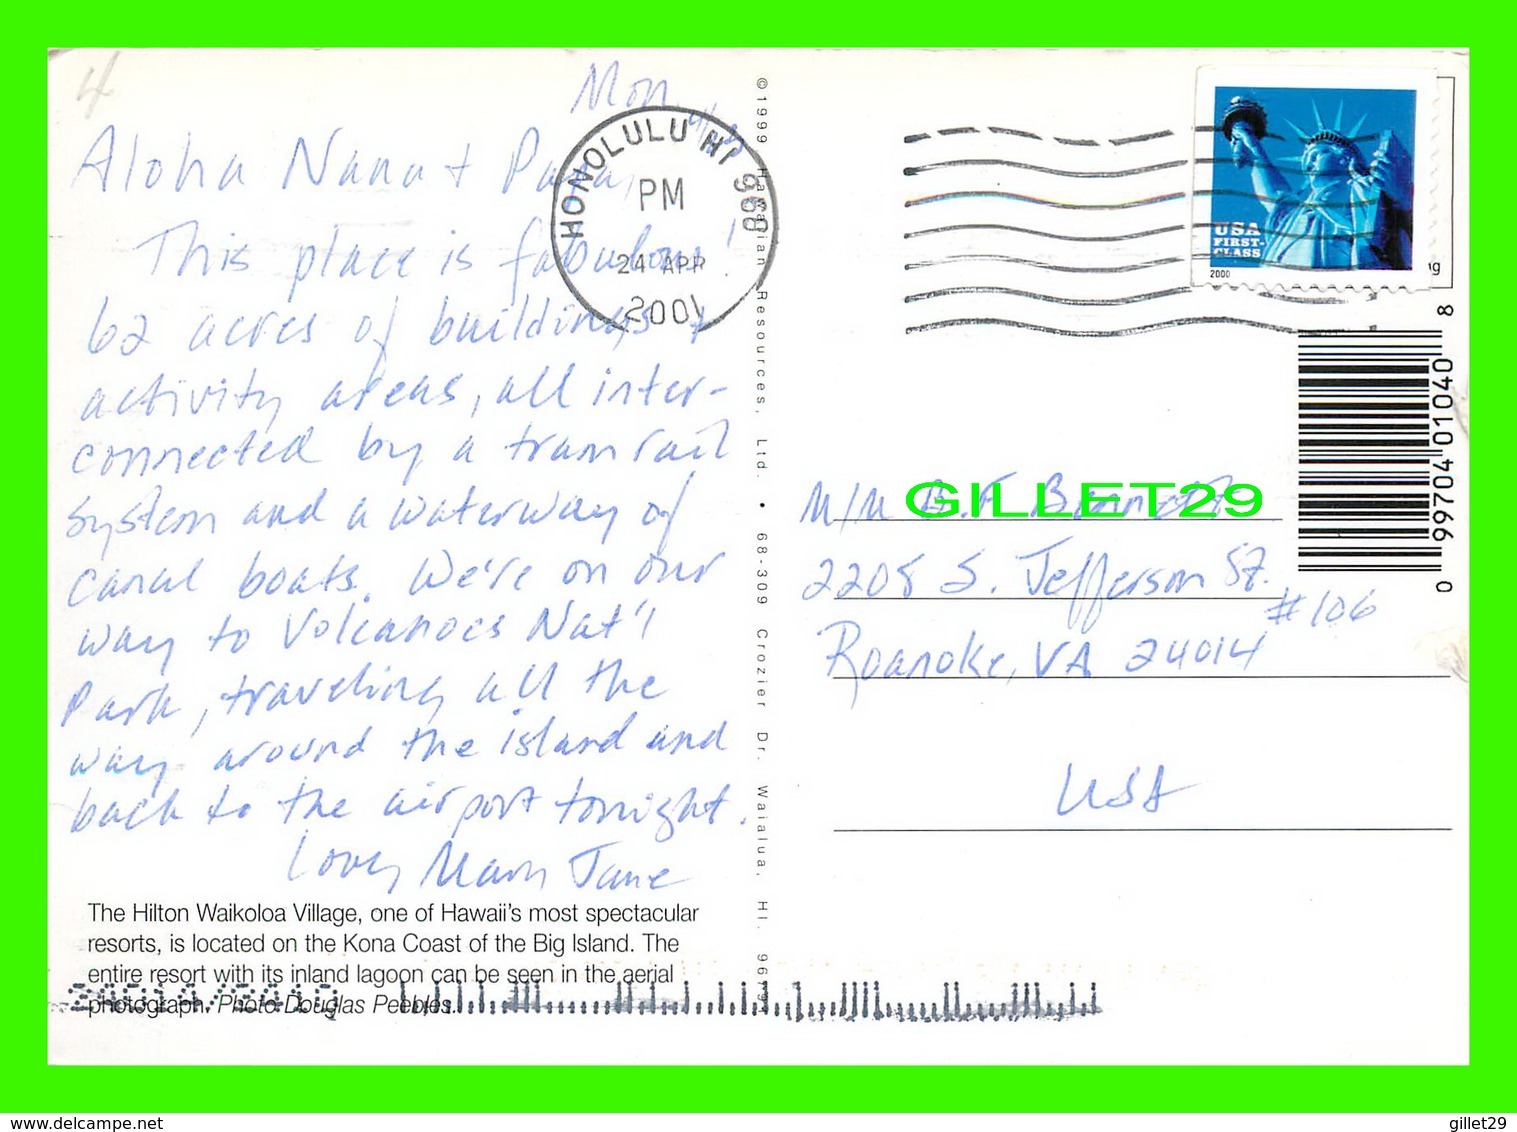 4
Mon.
Aloha Nana + Papa,
This place is fabulous!
62 acres of buildings +
activity areas, all inter-
connected by a tram rail
system and a waterway of
canal boats. We're on our
way to Volcanoes Nat'l
Park, traveling all the
way around the island and
back to the airport tonight.
Love, Mary Jane
The Hilton Waikoloa Village, one of Hawaii's most spectacular
resorts, is located on the Kona Coast of the Big Island. The
entire resort with its inland lagoon can be seen in the aerial
photograph. Photo Douglas Peebles.
HONOLULU HI 960
PM
24 APR
2001
©1999 Hawaiian Resources, Ltd. • 68-309 Crozier Dr. Waialua, HI. 96791
USA
FIRST-
CLASS
2000
8
0 99704 01040
GILLET29
M/M B.F. Bennett
2205 S. Jefferson St.
#106
Roanoke, VA 24014
USA
24014/2410
gillet29